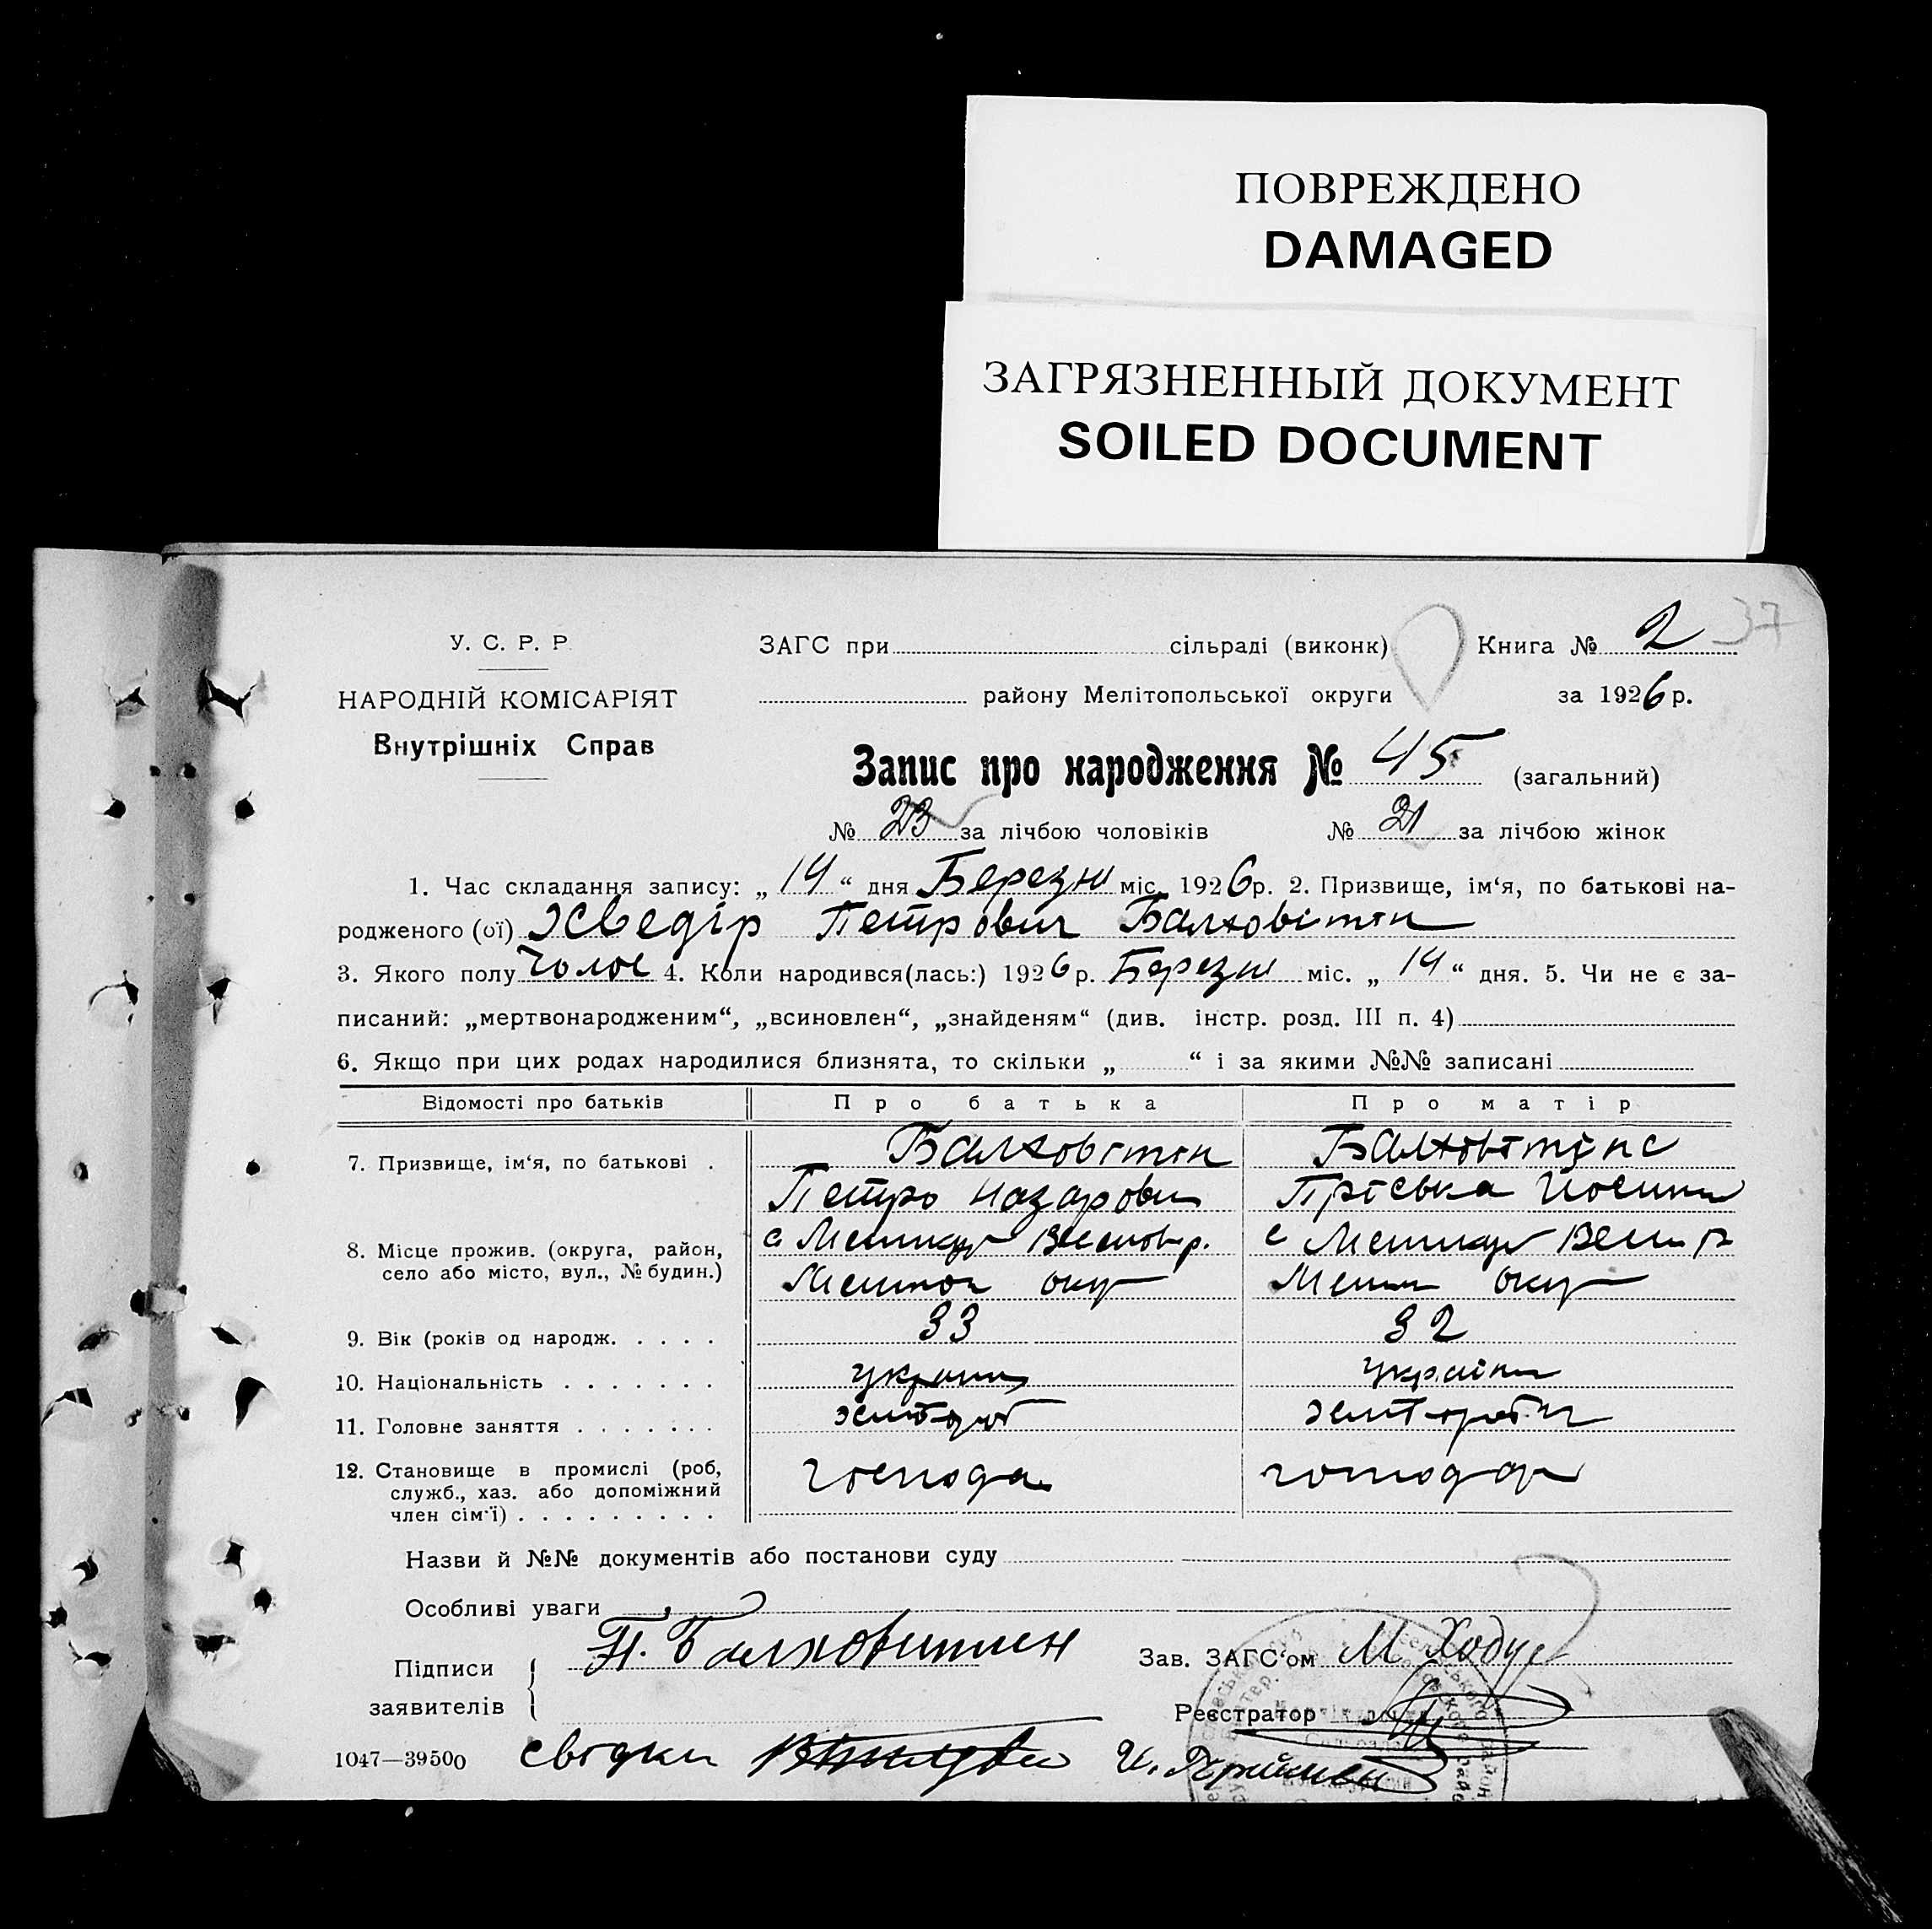 ПОВРЕЖДЕНО
DAMAGED
ЗАГРЯЗНЕННЫЙ ДОКУМЕНТ
SOILED DOCUMENT
У. С. Р. Р.
НАРОДНІЙ КОМІСАРІЯТ
Внутрішніх Справ
ЗАГС при сільраді (виконк) Книга № 2 37
району Мелітопольської округи за 1926 р.
Запис про народження № 45 (загальний)
№ 23 за лічбою чоловіків № 21 за лічбою жінок
1. Час складання запису: „ 14 “ дня Березня міс. 1926 р. 2. Призвище, ім‘я, по батькові на-
родженого (ої) Хведір Петрович Балховітін
3. Якого полу чолов 4. Коли народився(лась:) 1926 р. Березня міс. „ 14 “ дня. 5. Чи не є за-
писаний: „мертвонародженим“, „всиновлен“, „знайденям“ (див. інстр. розд. III п. 4)
6. Якщо при цих родах народилися близнята, то скільки „ “ і за якими №№ записані
Відомості про батьків Про батька Про матір
7. Призвище, ім‘я, по батькові . Балховітін Балховітіна
Петро Назарович Пріська
8. Місце прожив. (округа, район,
село або місто, вул., № будин.)
с с
окр окр
9. Вік (років од народж. . . . . 33 32
10. Національність . . . . . . . україн україн
11. Головне заняття . . . . . . .
12. Становище в промислі (роб,
служб., хаз. або допоміжний
член сім‘ї) . . . . . . . . .
господар господар
Назви й №№ документів або постанови суду
Особливі уваги
Підписи
заявителів
П. Балховитин
Зав. ЗАГС‘ом М Ходус
Реєстратор
1047—39500 свідки И.